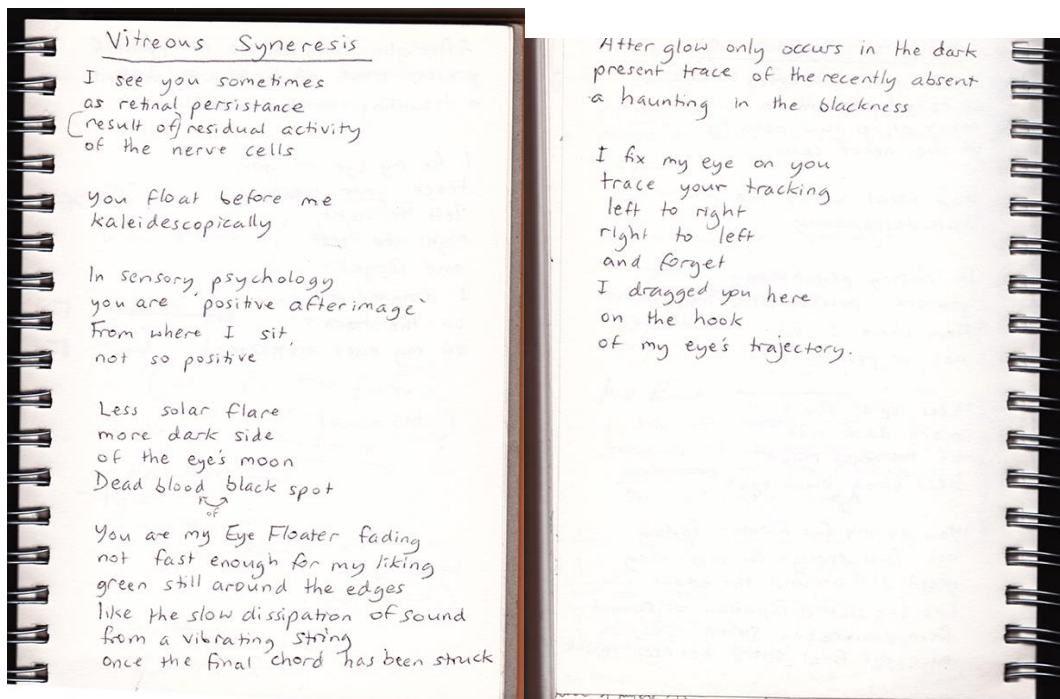 Vitreous Syneresis
I see you sometimes
as retinal persistance
(result of) residual activity
of the nerve cells
you float before me
kaleidescopically
In sensory psychology
you are 'positive afterimage'
From where I sit,
not so positive
Less solar flare
more dark side
of the eye's moon
Dead blood black spot
of
You are my Eye Floater fading
not fast enough for my liking
green still around the edges
like the slow dissipation of sound
from a vibrating string
once the final chord has been struck
After glow only occurs in the dark
present trace of the recently absent
a haunting in the blackness
I fix my eye on you
trace your tracking
left to right
right to left
and forget
I dragged you here
on the hook
of my eye's trajectory.